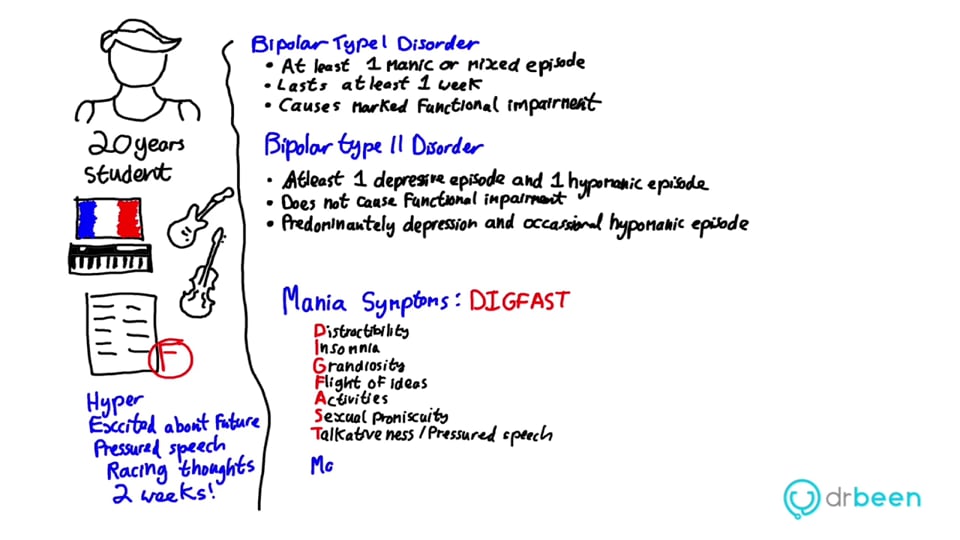 20 years
Student
F
Hyper
Excited about Future
Pressured speech
Racing thoughts
2 weeks!
Bipolar Type I Disorder
• At least 1 manic or mixed episode
• Lasts at least 1 week
• Causes marked Functional impairment
Bipolar type II Disorder
• Atleast 1 depressive episode and 1 hypomanic episode
• Does not cause Functional impairment
• Predominautely depression and occassional hypomanic episode
Mania Symptoms: DIGFAST
Distractibility
Insomnia
Grandiosity
Flight of Ideas
Activities
Sexual Promiscuity
Talkativeness/Pressured speech
Ma
drbeen